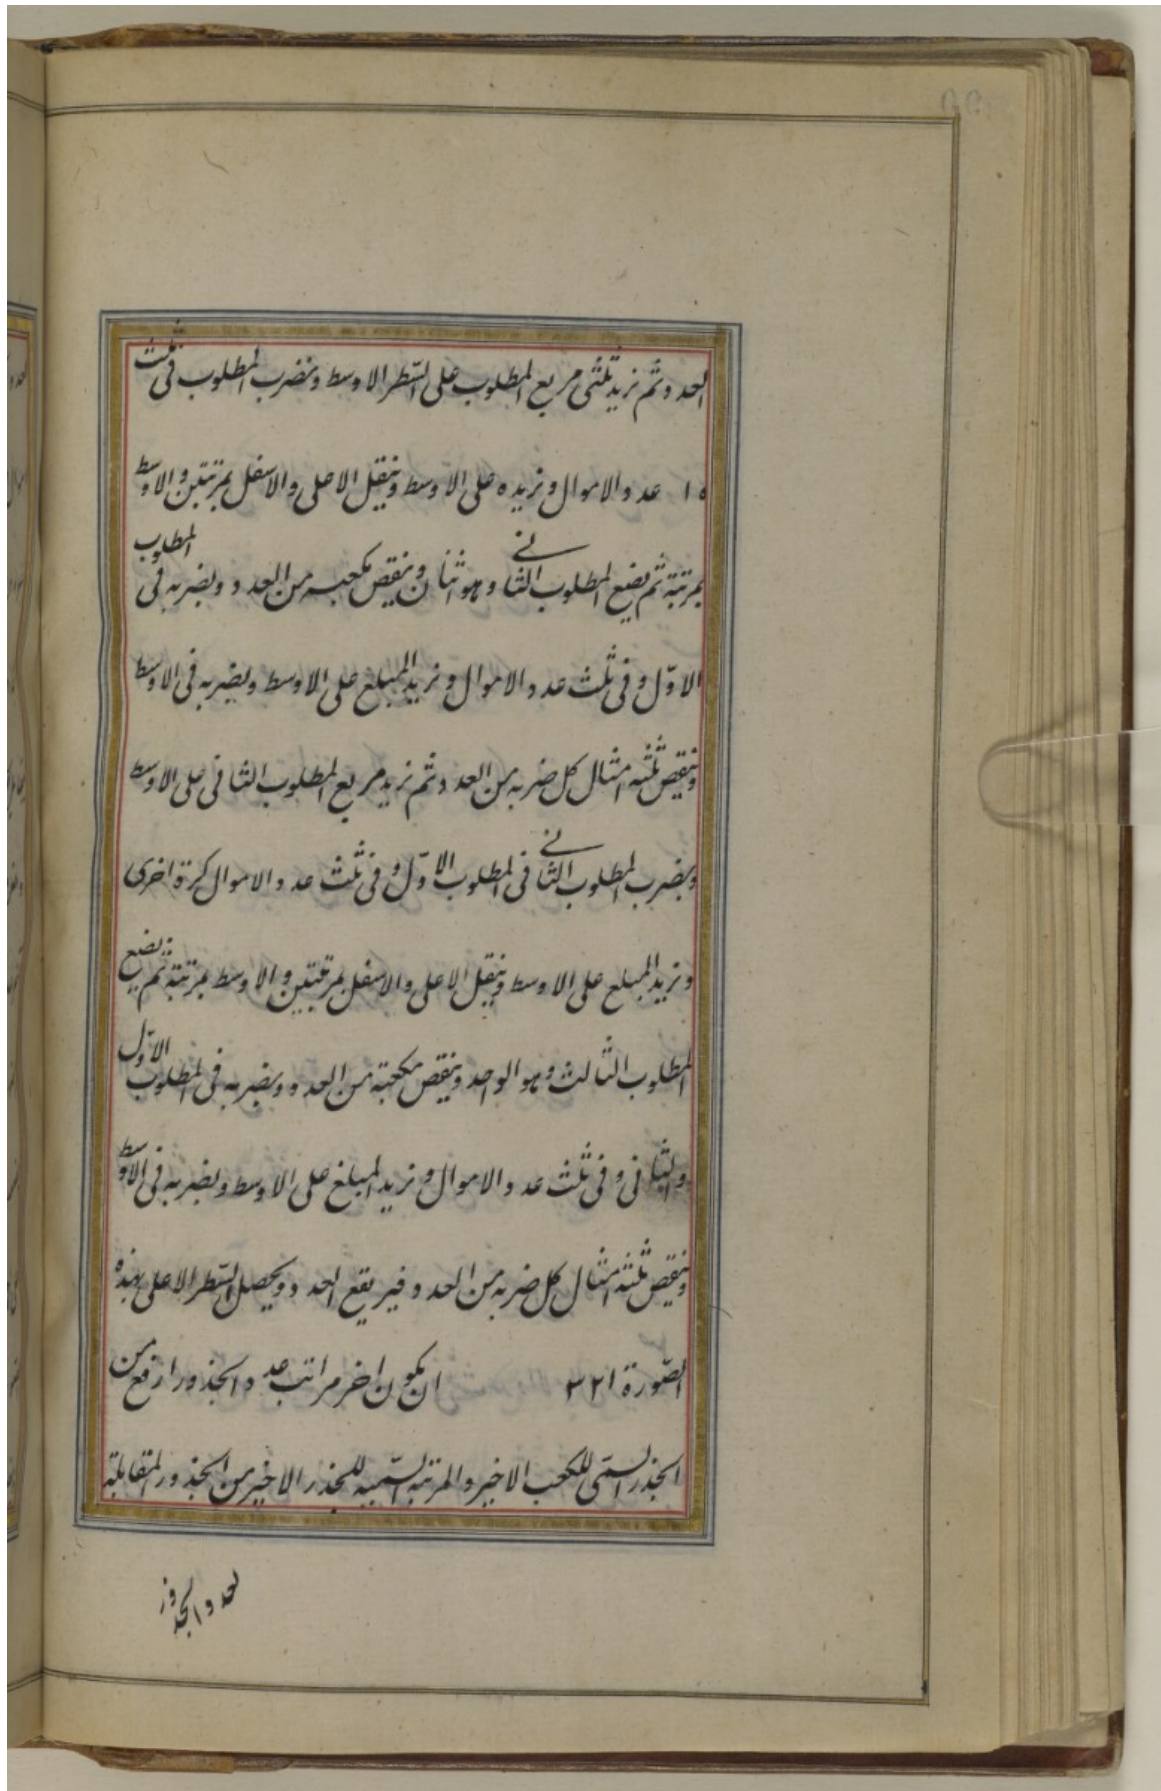 العدد ثم نزيد ثلثى مربع المطلوب على السّطر الاوسط و نضرب المطلوب فى ثلث
١٥ عدد الاموال و نزيده على الاوسط و ننقل الاعلى و الاسفل بمرتبتين و الاوسط
بمرتبة ثم نضع المطلوب الثانى و هو اثنان و ننقص مكعبه من العدد و نضربه فى المطلوب
الاوّل و فى ثلث عدد الاموال و نزيد المبلغ على الاوسط و نضربه فى الاوسط
و ننقص ثلثه امثال كل ضربه من العدد ثم نزيد مربع المطلوب الثانى على الاوسط
و نضرب المطلوب الثانى فى المطلوب الاوّل و فى ثلث عدد الاموال كرة اخرى
و نزيد المبلغ على الاوسط و ننقل الاعلى و الاسفل بمرتبتين و الاوسط بمرتبة ثم نضع
المطلوب الثالث و هو الواحد و ننقص مكعبه من العدد و نضربه فى المطلوب الاوّل
و الثانى و فى ثلث عدد الاموال و نزيد المبلغ على الاوسط و نضربه فى الاوسط
و ننقص ثلثه امثال كل ضربه من العدد فيرتفع العدد و يحصل السّطر الاعلى بهذه
الصّورة ٣٢١ ان يكون اخر مراتب عدد الجذور ارفع من
الجذر السمّى للكعب الاخير و المرتبة السّمية للجذر الاخير من الجذور المقابلة
لعدد الجذور